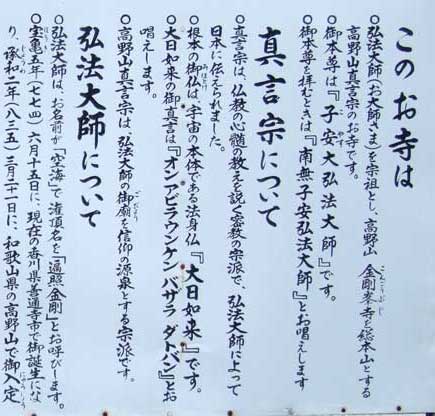 このお寺は
○弘法大師(お大師さま)を宗祖とし、高野山 金剛峯寺を総本山とする
高野山真言宗のお寺です。
○御本尊は『子安大弘法大師』です。
○御本尊を拝むときは『南無子安弘法大師』とお唱えします
真言宗について
○真言宗は、仏教の心髄の教えを説く密教の宗派で、弘法大師によって
日本に伝えられました。
○根本の御仏は、宇宙の本体である法身仏『大日如来』です。
○大日如来の御真言は『オンアビラウンケン バザラ ダトバン』とお
唱えします。
○高野山真言宗は、弘法大師の御廟を信仰の源泉とする宗派です。
弘法大師について
○弘法大師は、お名前が「空海」で灌頂名を「遍照金剛」とお呼びします。
○宝亀五年(七七四)六月十五日に、現在の香川県善通寺市で御誕生にな
り、承和二年(八三五)三月二十一日に、和歌山県の高野山で御入定